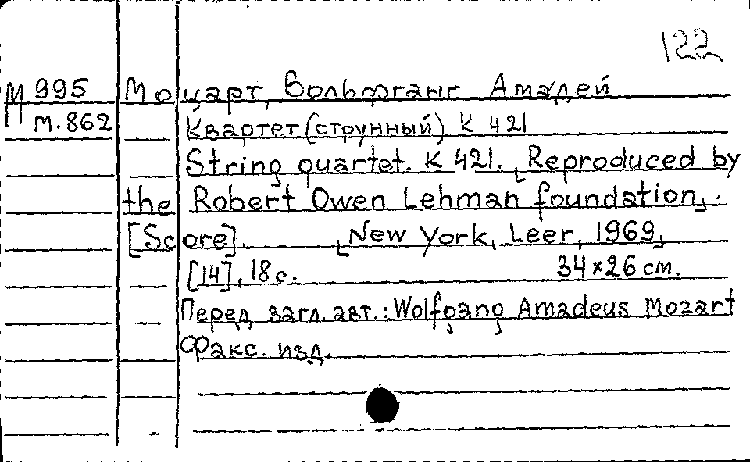 122
М 995 Моцарт, Вольфганг Амадей
м.862 Квартет (струнный) К 421
String quartet. K 421. [Reproduced by
the Robert Owen Lehman foundation].
[Score]. [New York, Leer, 1969]
[14], 18 с. 34×26 см.
Перед загл. авт.: Wolfgang Amadeus Mozart
Факс. изд.